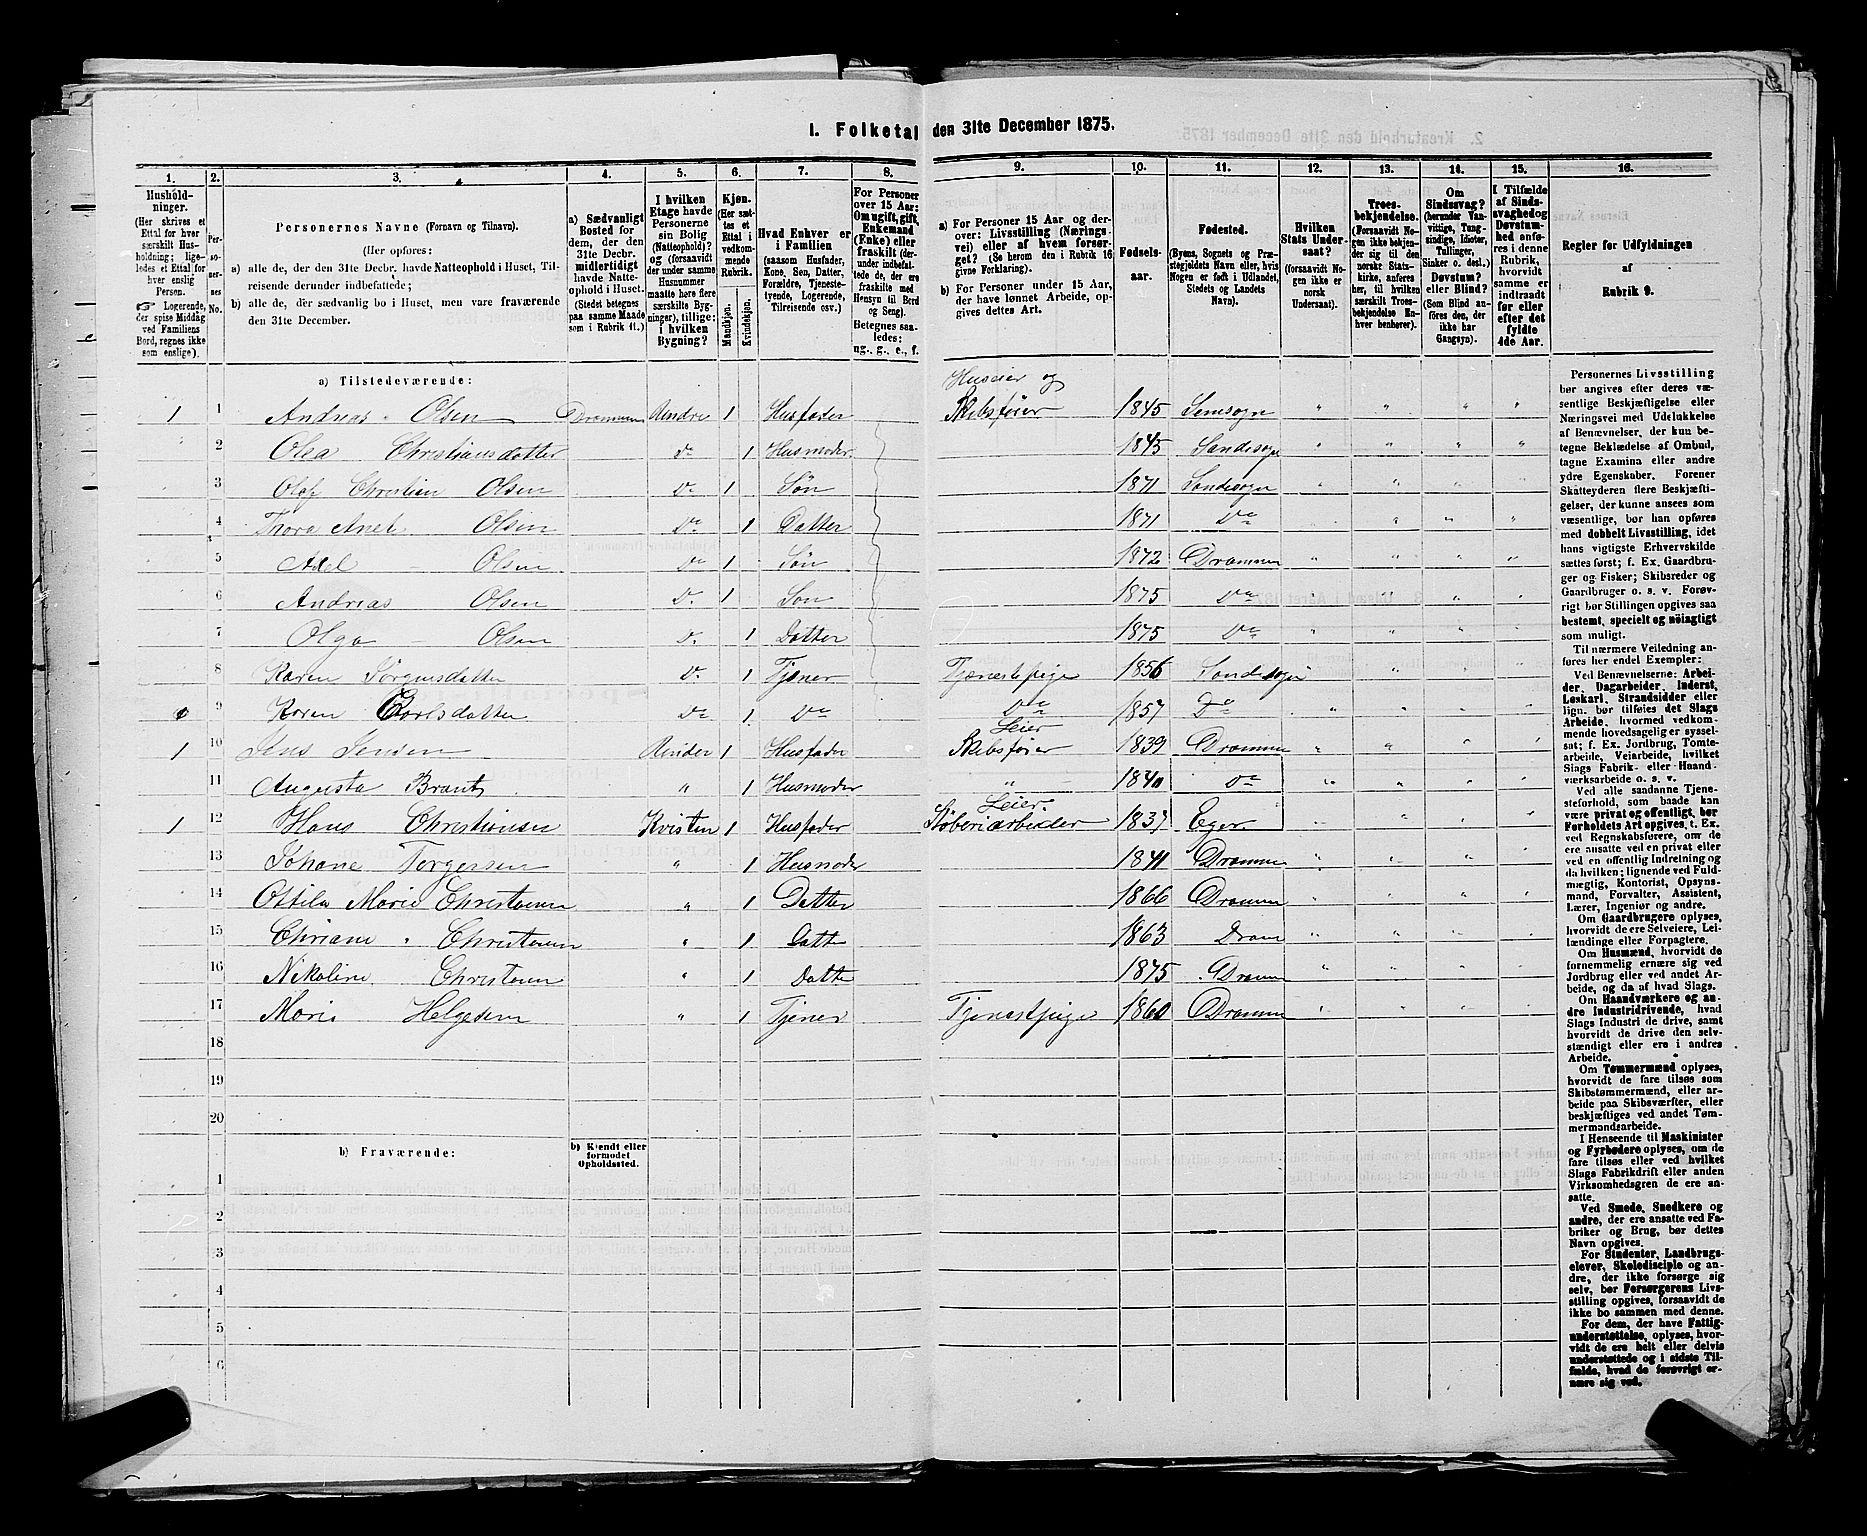 I. Folketal den 31te December 1875.
1. 2. 3. 4. 5. 6. 7. 8. 9. 10. 11. 12. 13. 14. 15. 16.
Hushold-
ninger.
(Her skrives et
Ettal for hver
særskilt Hus-
holdning; lige-
ledes et Ettal for
hver enslig
Person.
☞ Logerende,
der spise Middag
ved Familiens
Bord, regnes ikke
som enslige).
Per-
soner-
nes
No.
Personernes Navne (Fornavn og Tilnavn).
(Her opføres:
a) alle de, der den 31te Decbr. havde Natteophold i Huset, Til-
reisende derunder indbefattede;
b) alle de, der sædvanlig bo i Huset, men vare fraværende
den 31te December.
a) Sædvanligt
Bosted for
dem, der den
31te Decbr.
midlertidigt
havde Natte-
ophold i Huset.
(Stedet betegnes
paa samme Maade
som i Rubrik 11.)
I hvilken
Etage havde
Personerne
sin Bolig
(Natteophold)?
og (forsaavidt
der under samme
Husnummer
maatte høre flere
særskilte Byg-
ninger), tillige:
i hvilken
Bygning?
Kjøn.
(Her sæt-
tes et
Ettal i
vedkom-
mende
Rubrik.
Mandkjøn.
Kvindekjøn.
Hvad Enhver er
i Familien
(saasom Husfader,
Kone, Søn, Datter,
Forældre, Tjeneste-
tyende, Logerende,
Tilreisende osv.)
For Personer
over 15 Aar:
Om ugift, gift,
Enkemand
(Enke) eller
fraskilt (der-
under indbefat-
tede de, der ere
fraskilte med
Hensyn til Bord
og Seng).
Betegnes saa-
ledes:
ug., g., e., f.
a) For Personer 15 Aar og der-
over: Livsstilling (Nærings-
vei) eller af hvem forsør-
get? (Se herom den i Rubrik 16
givne Forklaring).
b) For Personer under 15 Aar,
der have lønnet Arbeide, op-
gives dettes Art.
Fødsels-
aar.
Fødested.
(Byens, Sognets og Præ-
stegjeldets Navn eller, hvis
Nogen er født i Udlandet,
Stedets og Landets
Navn).
Hvilken
Stats Under-
saat?
(forsaavidt No-
gen ikke er
norsk
Undersaat).
Troes-
bekjendelse.
(Forsaavidt No-
gen ikke bekjen-
der sig til den
norske Stats-
kirke, anføres
her, til hvilken
særskilt Troes-
bekjendelse En-
hver henhører).
Om
Sindssvag?
(herunder Van-
vittige, Tung-
sindige, Idioter,
Tullinger,
Sinker o. desl.)
Døvstum?
eller Blind?
(Som Blind an-
føres den, der
ikke har
Gangsyn).
I Tilfælde
af Sinds-
svaghed og
Døvstum-
hed anfø-
res i denne
Rubrik,
hvorvidt
samme er
indtraadt
før eller
efter det
fyldte
4de Aar.
Regler for Udfyldningen
af
Rubrik 9.
a) Tilstedeværende:
Huseier og
1 1 Andreas Olsen Drammen 1 Husfader Skibsfører 1845 Semsogn
2 Olea Christiansdatter do 1 Husmoder 1845 Sandesogn
3 Olaf Christian Olsen do 1 Søn 1871 Sandesogn
4 Thora Anet Olsen do 1 Datter 1871 do
5 Axel Olsen do 1 Søn 1872 Drammen
6 Andreas Olsen do 1 Søn 1875 do
7 Olga Olsen do 1 Datter 1875 do
8 Karen Jørgensdatter do 1 Tjener Tjenestepige 1856 Sandesogn
9 Karen Carlsdatter do 1 do do 1857 Do
Leier
1 10 Jens Jensen 1 Husfader Skibsfører 1839 Drammen
11 Augusta Brant " 1 Husmoder " 1840 do
Leier
1 12 Hans Christiansen Kvisten 1 Husfader Støberiarbeider 1837 Eger
13 Johane Torgersen " 1 Husmoder 1841 Drammen
14 Ottilie Marie Christensen " 1 Datter 1866 Drammen
15 Christensen " 1 Datter 1863 Dram
16 Nikoline Christensen " 1 Datter 1875 Drammen
17 Marie Helgesen " 1 Tjener Tjenestpige 1860 Drammen
18
19
20
b) Fraværende:
b) Kjendt eller
formodet
Opholdssted.
1
2
3
4
5
6
Personernes Livsstilling
bør angives efter deres væ-
sentlige Beskjæftigelse eller
Næringsvei med Udelukkelse
af Benævnelser, der kun be-
tegne Beklædelse af Ombud,
tagne Examina eller andre
ydre Egenskaber. Forener
Skatteyderen flere Beskjæfti-
gelser, der kunne ansees som
væsentlige, bør han opføres
med dobbelt Livsstilling, idet
hans vigtigste Erhvervskilde
sættes først; f. Ex. Gaardbru-
ger og Fisker; Skibsreder og
Gaardbruger o. s. v. Forøv-
rigt bør Stillingen opgives saa
bestemt, specielt og nöiagtigt
som muligt.
Til nærmere Veiledning an-
føres her endel Exempler:
Ved Benævnelserne: Arbei-
der, Dagarbeider, Inderst,
Løskarl, Strandsidder eller
lign. bør tilføies det Slags
Arbeide, hvormed vedkom-
mende hovedsagelig er syssel-
sat; f. Ex. Jordbrug, Tomte-
arbeide, Veiarbeide, hvilket
Slags Fabrik- eller Haand-
værksarbeide o. s. v.
Ved alle saadanne Tjene-
steforhold, som baade kan
være privat og offentligt, bør
Forholdets Art opgives, t. Ex.
ved Regnskabsførere, om de
ere ansatte ved en privat eller
ved en offentlig Indretning og
da hvilken; lignende ved Fuld-
mægtig, Kontorist, Opsyns-
mand, Forvalter, Assistent,
Lærer, Ingeniør og andre.
Om Gaardbrugere oplyses,
hvorvidt de ere Selveiere, Lei-
lændinge eller Forpagtere.
Om Husmænd, hvorvidt de
fornemmelig ernære sig ved
Jordbrug eller ved andet Ar-
beide, og da af hvad Slags.
Om Haandværkere og an-
dre Industridrivende, hvad
Slags Industri de drive, samt
hvorvidt de drive den selv-
stændigt eller ere i andres
Arbeide.
Om Tømmermænd oplyses,
hvorvidt de fare tilsøs som
Skibstømmermænd, eller ar-
beide paa Skibsværfter, eller
beskjæftiges ved andet Tøm-
mermandsarbeide.
I Henseende til Maskinister
og Fyrbødere oplyses, om de
fare tilsøs eller ved hvilket
Slags Fabrikdrift eller anden
Virksomhedsgren de ere an-
satte.
Ved Smede, Snedkere og
andre, der ere ansatte ved Fa-
briker og Brug, bør dettes
Navn opgives.
For Studenter, Landbrugs-
elever, Skoledisciple og an-
dre, der ikke forsørge sig
selv, bør Forsørgerens Livs-
stilling opgives, forsaavidt de
ikke bo sammen med denne.
For dem, der have Fattig-
understøttelse, oplyses, hvor-
vidt de ere helt eller delvis
understøttede og i sidste Til-
fælde, hvad de forøvrigt er-
nære sig ved.